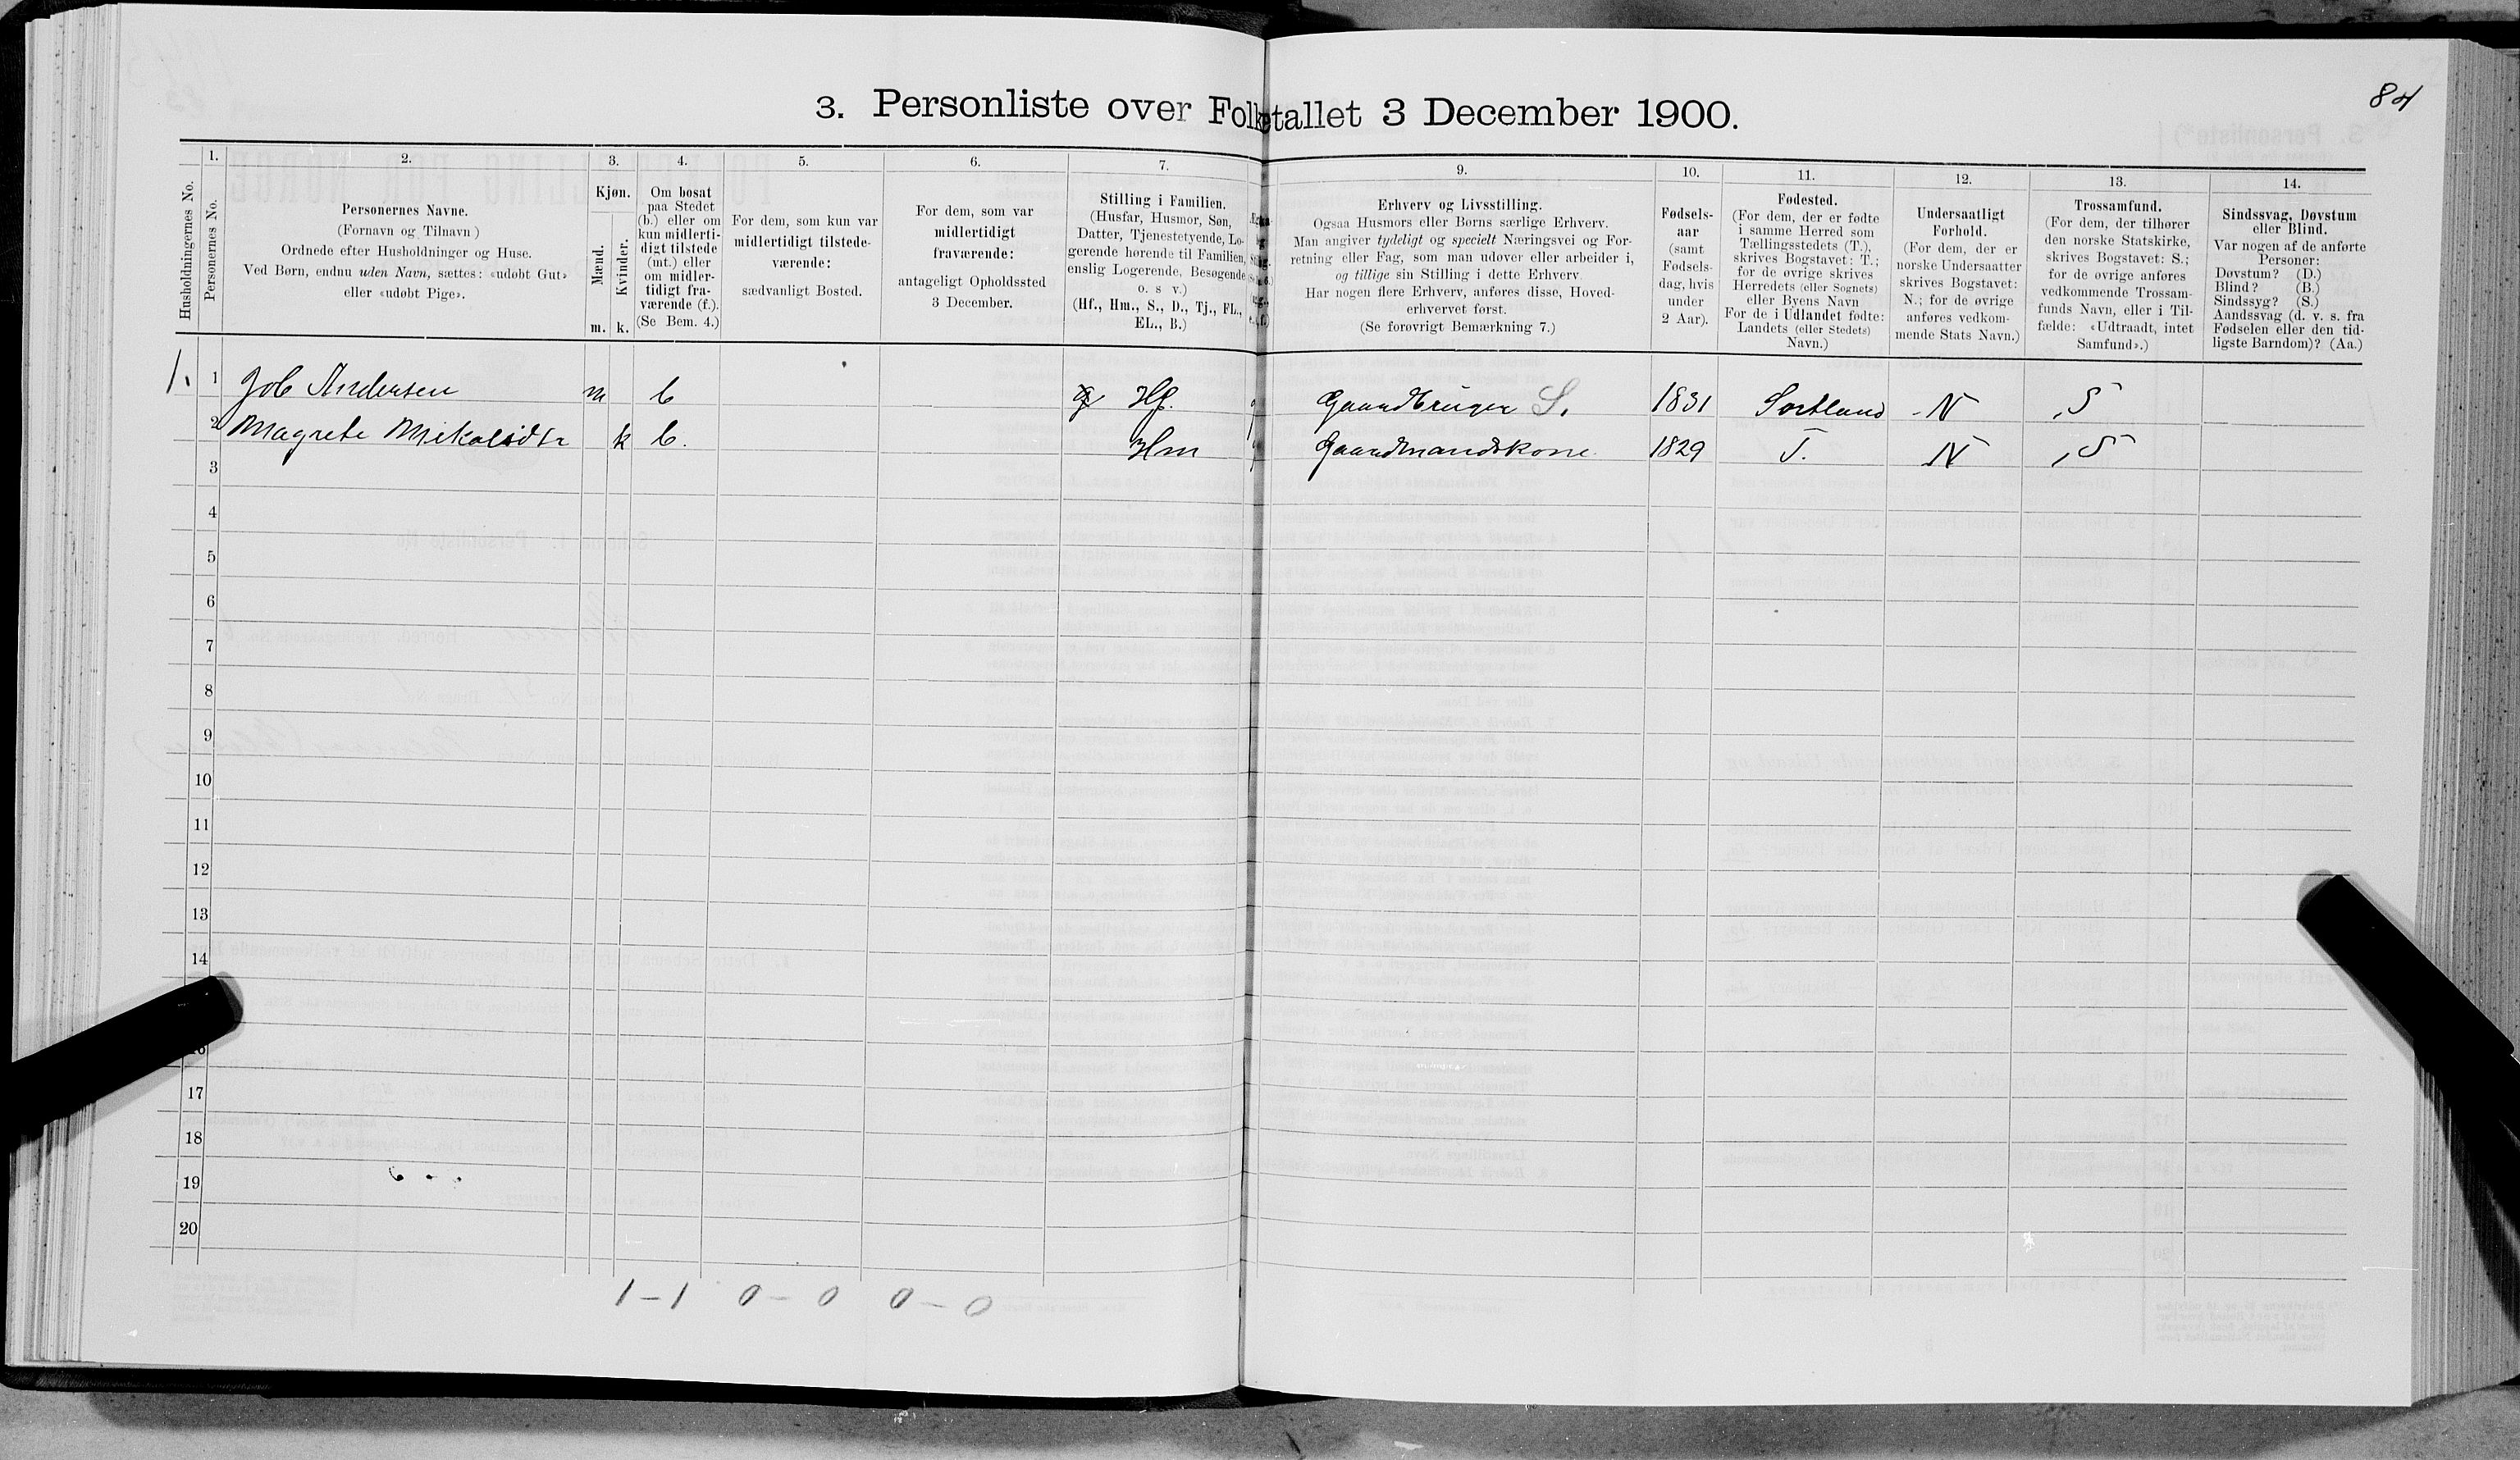 84
3. Personliste over Folketallet 3 December 1900.
Husholdningernes No.
1.
Personernes No.
2.
Personernes Navne.
(Fornavn og Tilnavn )
Ordnede efter Husholdninger og Huse.
Ved Børn, endnu uden Navn, sættes: «udøbt Gut»
eller «udøbt Pige».
3.
Kjøn.
Mænd.
Kvinder.
m. k.
4.
Om bosat
paa Stedet
(b.) eller om
kun midlerti-
digt tilstede
(mt.) eller
om midler-
tidigt fra-
værende (f.).
(Se Bem. 4.)
5.
For dem, som kun var
midlertidigt tilstede-
værende:
sædvanligt Bosted.
6.
For dem, som var
midlertidigt
fraværende:
antageligt Opholdssted
3 December.
7.
Stilling i Familien.
(Husfar, Husmor, Søn,
Datter, Tjenestetyende, Lo-
gerende hørende til Familien,
enslig Logerende, Besøgende
o. s v.)
(Hf., Hm., S., D., Tj., FL.,
EL., B.)
9.
Erhverv og Livsstilling.
Ogsaa Husmors eller Børns særlige Erhverv.
Man angiver tydeligt og specielt Næringsvei og For-
retning eller Fag, som man udøver eller arbeider i,
og tillige sin Stilling i dette Erhverv.
Har nogen flere Erhverv, anføres disse, Hoved-
erhvervet først.
(Se forøvrigt Bemærkning 7.)
10.
Fødsels-
aar
(samt
Fødsels-
dag, hvis
under
2 Aar).
11.
Fødested.
(For dem, der er fødte
i samme Herred som
Tællingsstedets (T.),
skrives Bogstavet: T.;
for de øvrige skrives
Herredets (eller Sognets)
eller Byens Navn
For de i Udlandet fødte:
Landets (eller Stedets)
Navn.)
12.
Undersaatligt
Forhold.
(For dem, der er
norske Undersaatter
skrives Bogstavet:
N.; for de øvrige
anføres vedkom-
mende Stats Navn.)
13.
Trossamfund.
(For dem, der tilhører
den norske Statskirke,
skrives Bogstavet: S.;
for de øvrige anføres
vedkommende Trossam-
funds Navn, eller i Til-
fælde: «Udtraadt, intet
Samfund».)
14.
Sindssvag, Døvstum
eller Blind.
Var nogen af de anførte
Personer:
Døvstum? (D.)
Blind? (B.)
Sindssyg? (S.)
Aandssvag (d. v. s. fra
Fødselen eller den tid-
ligste Barndom)? (Aa.)
1. 1 Job Andersen m b Hf. g Gaardbruger S. 1831 Sortland N S
2 Magrete Mikalsdtr k b. Hm g Gaardmandskone 1829 T. N S
3
4
5
6
7
8
9
10
11
12
13
14
16
17
18
19
20
1 – 1 0 – 0 0 – 0